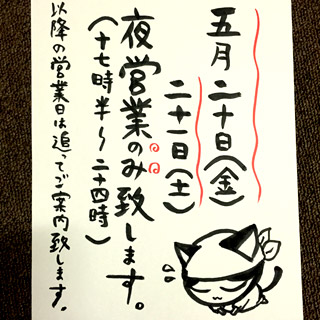 五月二十日(金)
二十一日(土)
夜営業のみ致します。
(十七時半～二十四時)
以降の営業日は追ってご案内致します。